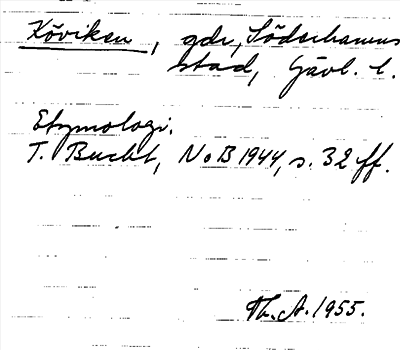 Köviken, gdr, Söderhamns
stad, Gävl. l.
Etymologi.
T. Bucht, NoB 1944, s. 32 ff.
Th. A. 1955.